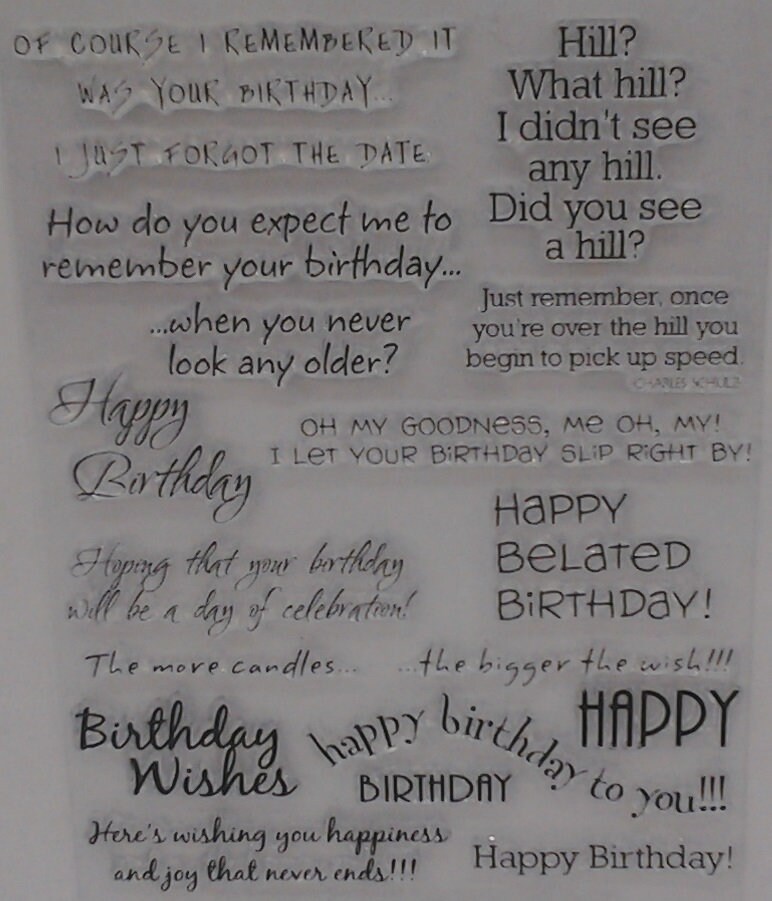 OF COURSE I REMEMBERED IT
WAS YOUR BIRTHDAY...
I JUST FORGOT THE DATE.
Hill?
What hill?
I didn't see
any hill.
Did you see
a hill?
How do you expect me to
remember your birthday...
...when you never
look any older?
Just remember, once
you're over the hill you
begin to pick up speed.
CHARLES SCHULZ
Happy
Birthday
OH MY GOODNeSS, Me OH, MY!
I LeT YOUR BiRTHDaY SLiP RiGHT BY!
HaPPY
BeLaTeD
BiRTHDaY!
Hoping that your birthday
will be a day of celebration!
The more candles... ...the bigger the wish!!!
Birthday
Wishes
happy birthday to you!!!
HAPPY
BIRTHDAY
Here's wishing you happiness
and joy that never ends!!!
Happy Birthday!